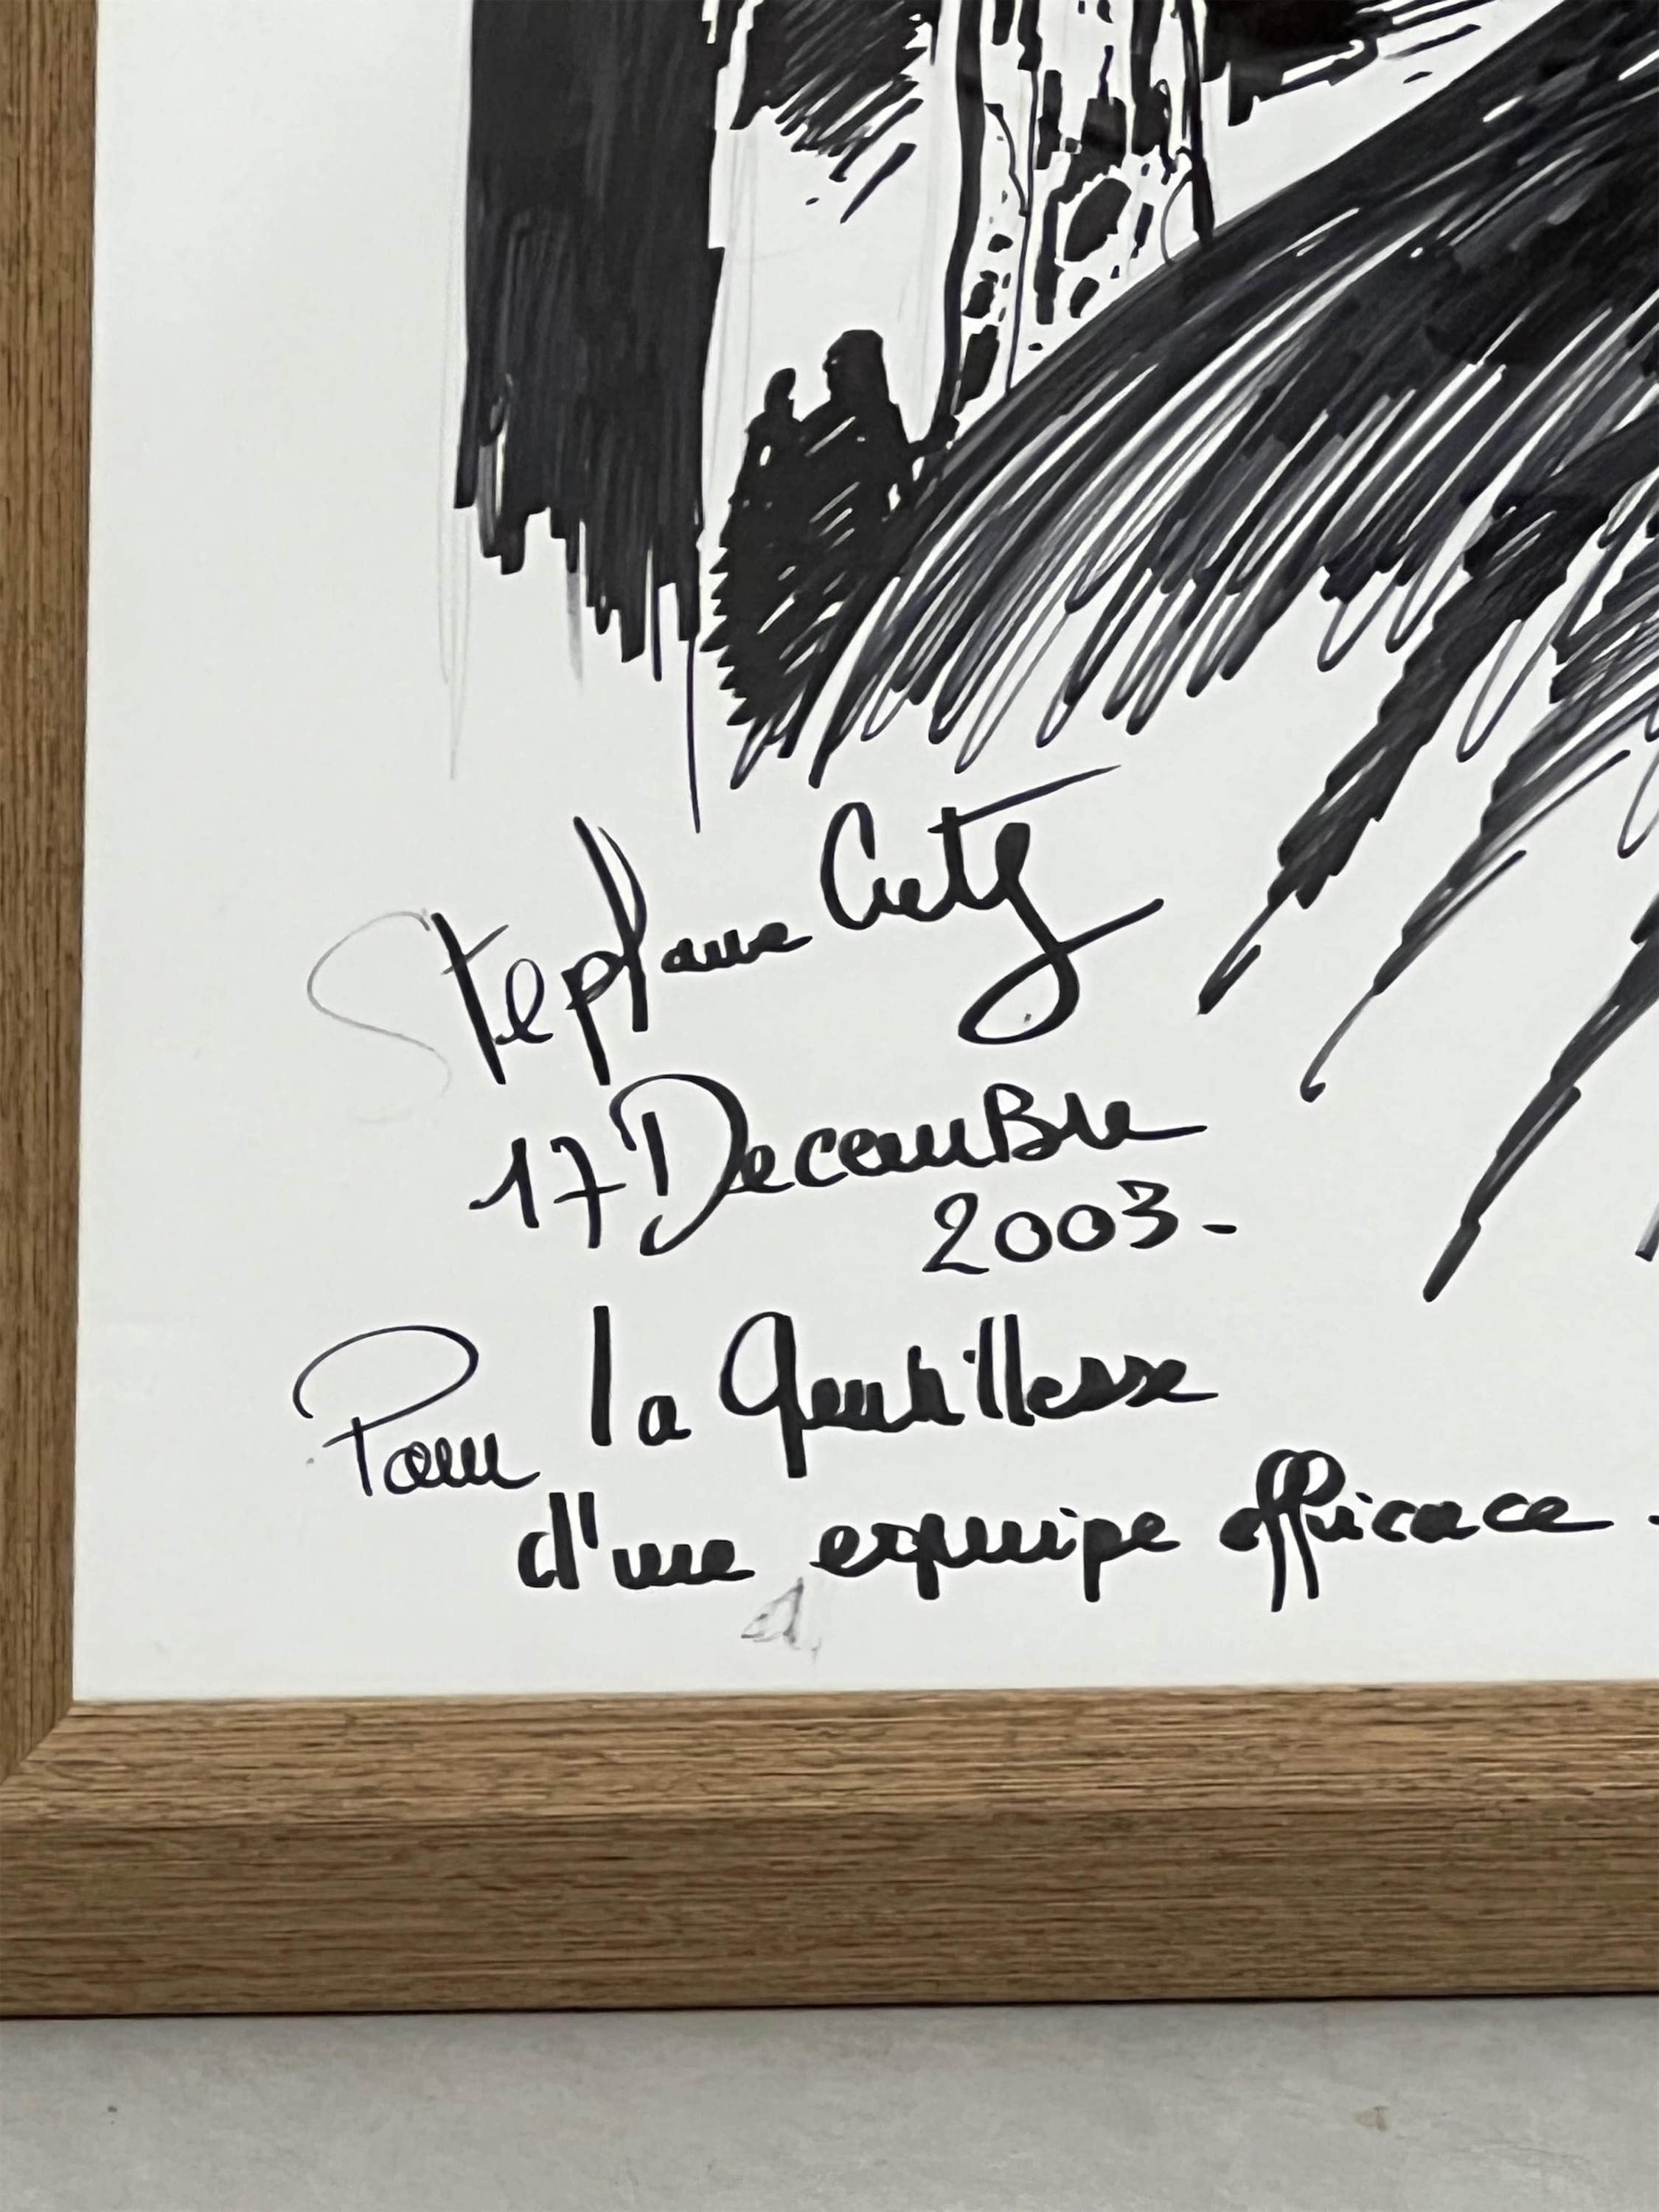 Stephane Cuty
17 Decembre
2003-
Pour la Gentillesse
d'une equipe efficace -